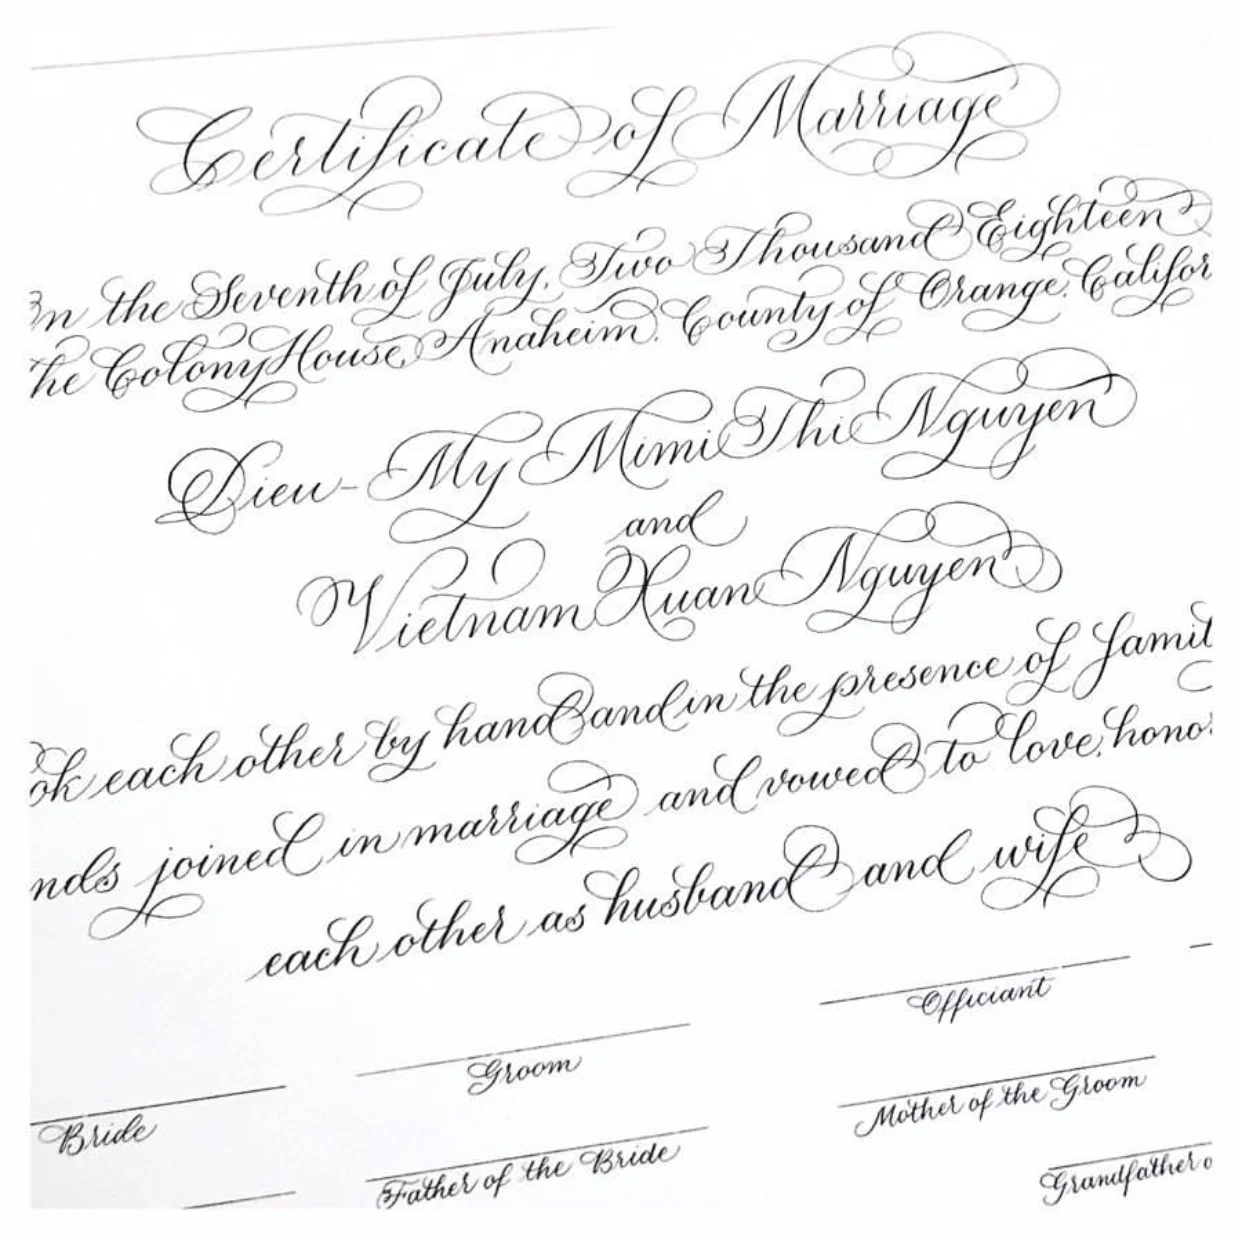 Certificate of Marriage
On the Seventh of July, Two Thousand Eighteen
the Colony House, Anaheim, County of Orange, Califor
Dieu-My Mimi Thi Nguyen
and
Vietnam Xuan Nguyen
ok each other by hand and in the presence of famil
nds joined in marriage and vowed to love, hono
each other as husband and wife
Officiant
Groom
Bride
Mother of the Groom
Father of the Bride
Grandfather o